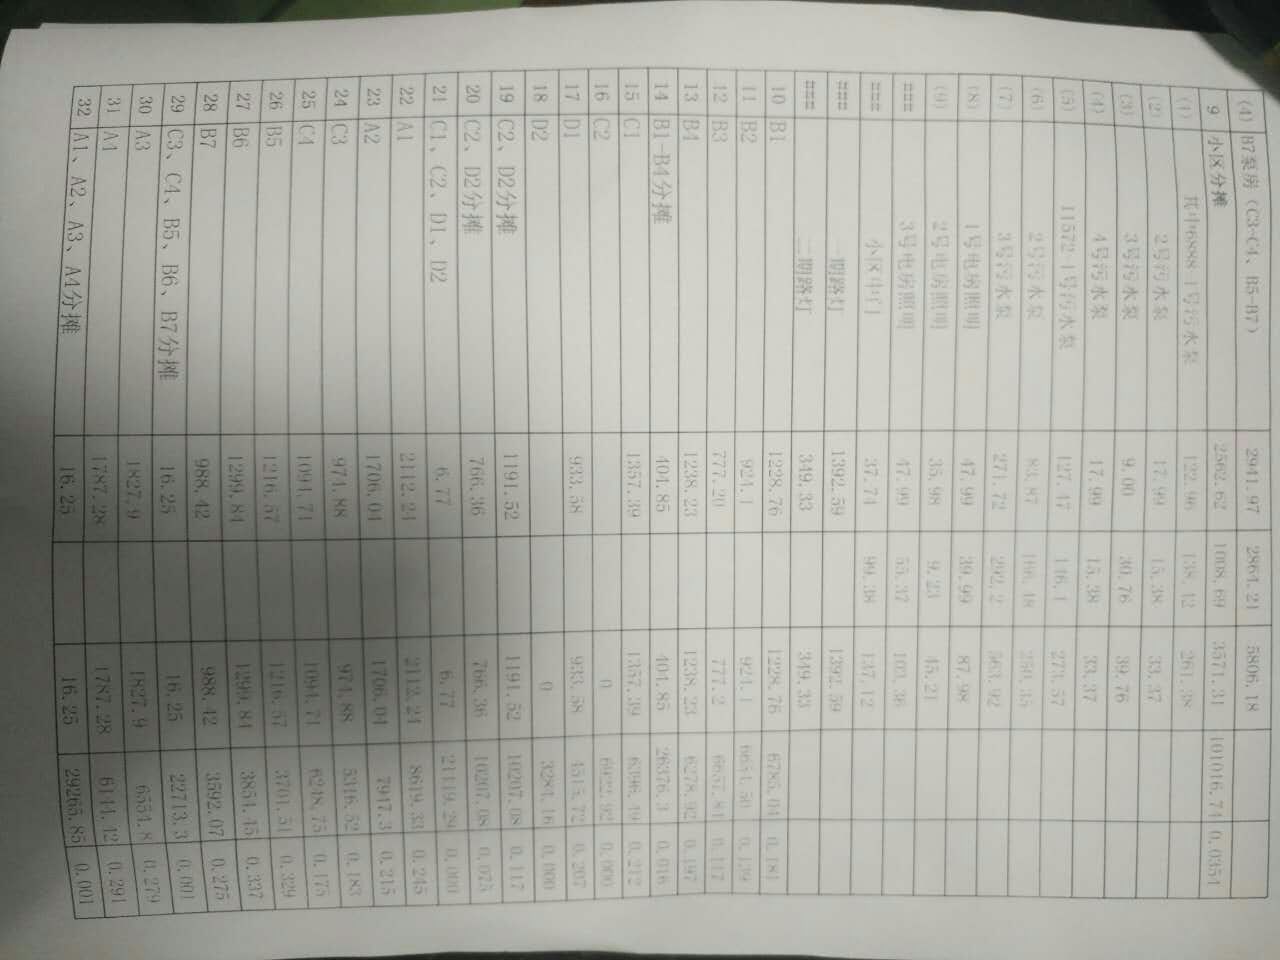 (4) B7泵房（C3-C4、B5-B7） 2941.97 2864.21 5806.18
9 小区分摊 2562.62 1008.69 3571.31 101016.74 0.0354
(1) 其中6888-1号污水泵 122.96 138.42 261.38
(2) 2号污水泵 17.99 15.38 33.37
(3) 3号污水泵 9.00 30.76 39.76
(4) 4号污水泵 17.99 15.38 33.37
(5) 11572-1号污水泵 127.47 146.1 273.57
(6) 2号污水泵
(7) 3号污水泵 271.72 292.2 563.92
(8) 1号电房照明 47.99 39.99 87.98
(9) 2号电房照明 35.98 9.23 45.21
### 3号电房照明 47.99 55.37 103.36
### 37.74 99.38 137.12
### 一期路灯 1392.59 1392.59
### 二期路灯 349.33 349.33
10 B1 1228.76 1228.76 6785.04 0.181
11 B2 924.1 924.1 6654.50 0.139
12 B3 777.20 777.2 6657.84 0.117
13 B4 1238.23 1238.23 6278.92 0.197
14 B1-B4分摊 404.85 404.85 26376.3 0.016
15 C1 1357.39 1357.39 6396.49 0.212
16 C2 0 6922.92 0.000
17 D1 933.58 933.58 4515.72 0.207
18 D2 0 3284.16 0.000
19 C2、D2分摊 1191.52 1191.52 10207.08 0.117
20 C2、D2分摊 766.36 766.36 10207.08 0.075
21 C1、C2、D1、D2 6.77 6.77 21119.29 0.000
22 A1 2112.24 2112.24 8619.33 0.245
23 A2 1706.04 1706.04 7947.3 0.215
24 C3 974.88 974.88 5316.52 0.183
25 C4 1094.71 1094.71 6248.75 0.175
26 B5 1216.57 1216.57 3701.51 0.329
27 B6 1299.84 1299.84 3854.45 0.337
28 B7 988.42 988.42 3592.07 0.275
29 C3、C4、B5、B6、B7分摊 16.25 16.25 22713.3 0.001
30 A3 1827.9 1827.9 6554.8 0.279
31 A4 1787.28 1787.28 6144.42 0.291
32 A1、A2、A3、A4分摊 16.25 16.25 29265.85 0.001